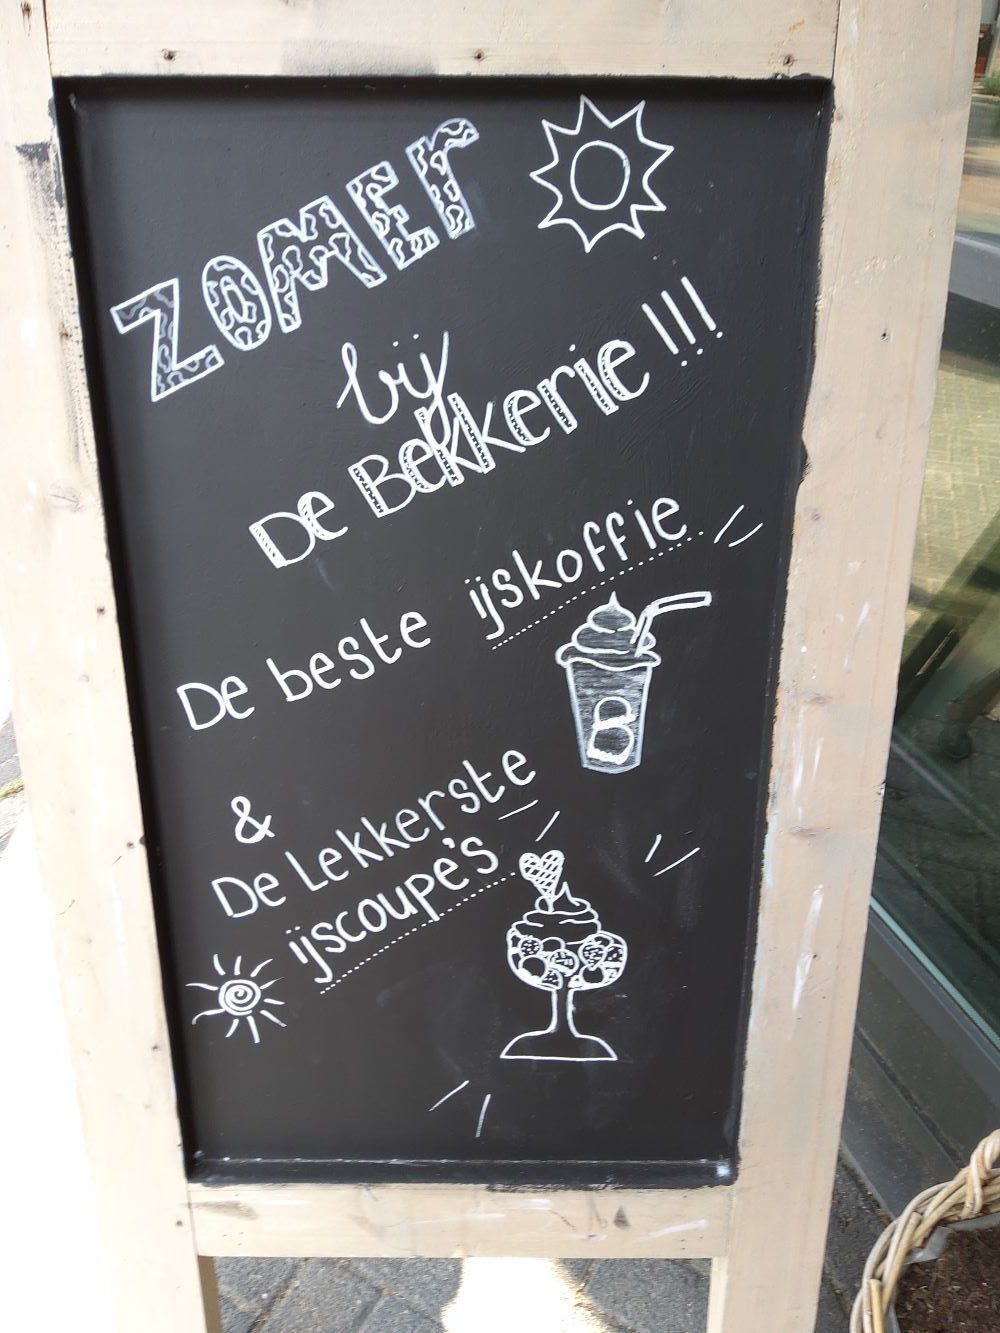 ZOMER
bij
De Bekkerie !!!
De beste ijskoffie
B
&
De Lekkerste
ijscoupe's